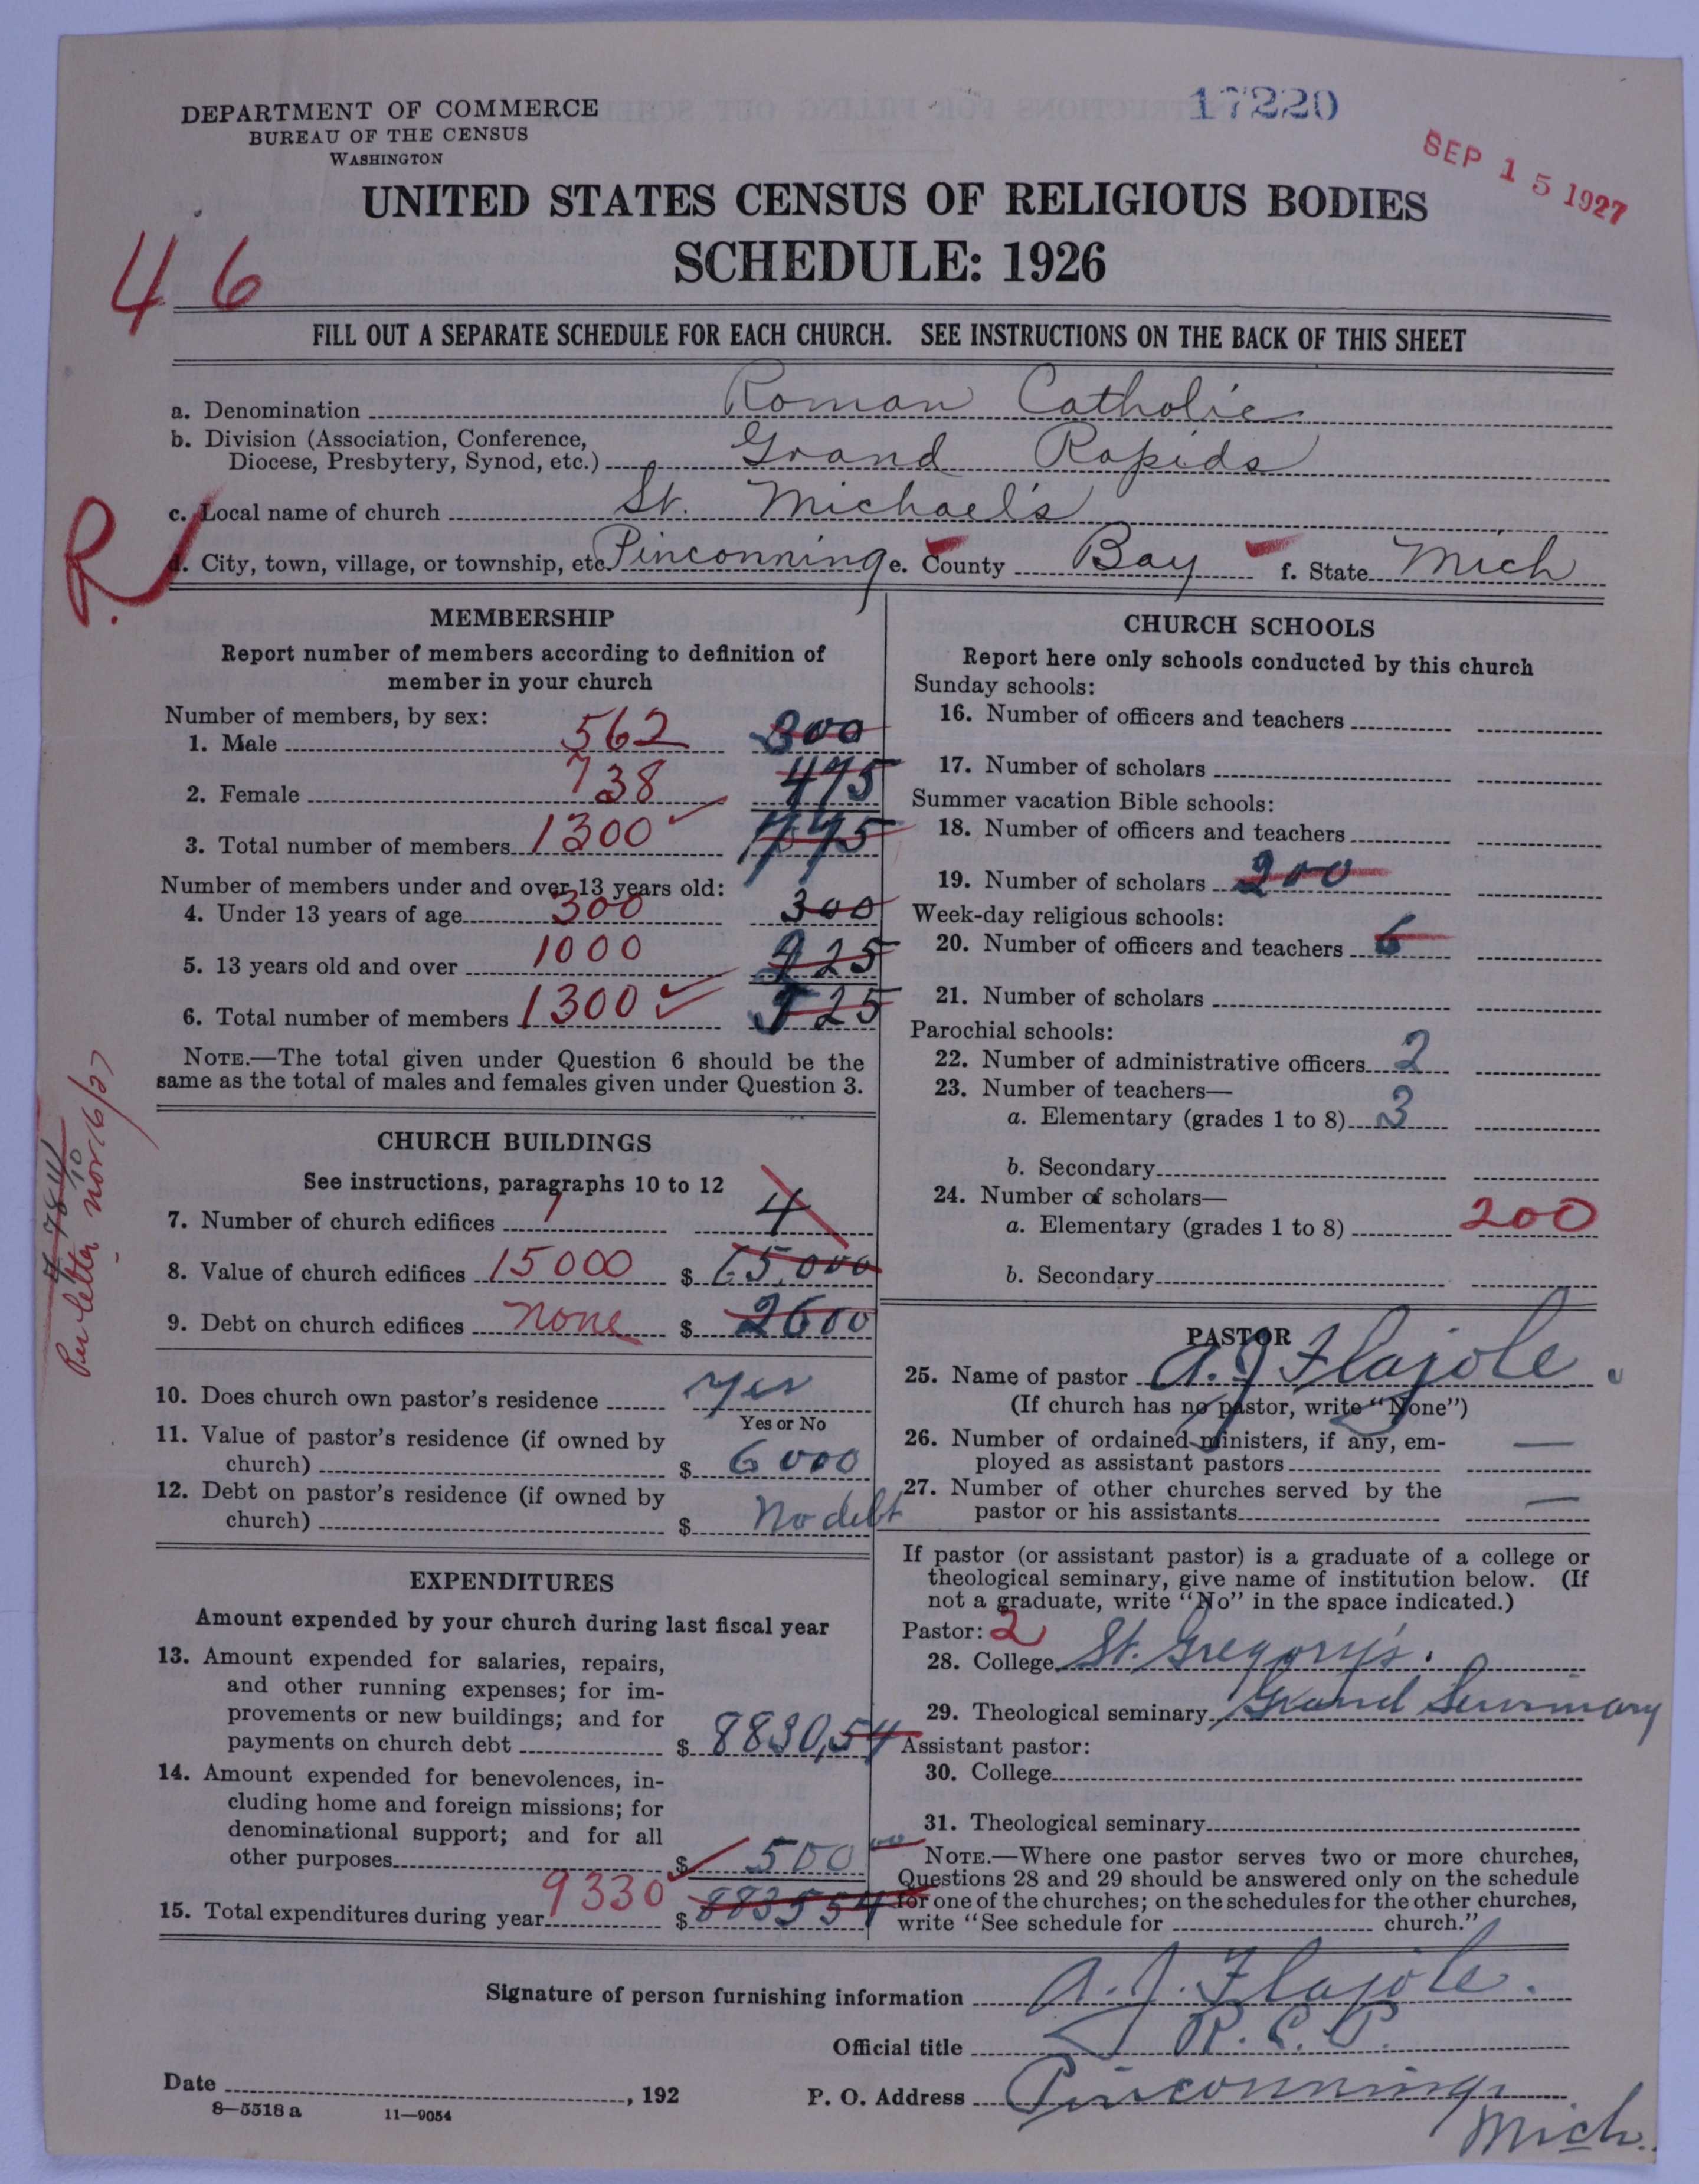 17220
SEP 15 1927
DEPARTMENT OF COMMERCE
BUREAU OF THE CENSUS
WASHINGTON
UNITED STATES CENSUS OF RELIGIOUS BODIES
SCHEDULE: 1926
46
FILL OUT A SEPARATE SCHEDULE FOR EACH CHURCH. SEE INSTRUCTIONS ON THE BACK OF THIS SHEET
a. Denomination Roman Catholic
b. Division (Association, Conference,
Diocese, Presbytery, Synod, etc.) Grand Rapids
c. Local name of church St. Michael's
R.
d. City, town, village, or township, etc. Pinconning e. County Bay f. State Mich
MEMBERSHIP
Report number of members according to definition of
member in your church
Number of members, by sex:
1. Male 562 300
2. Female 738 475
3. Total number of members 1300
Number of members under and over 13 years old:
4. Under 13 years of age 300 300
5. 13 years old and over 1000 925
6. Total number of members 1300
NOTE.—The total given under Question 6 should be the
same as the total of males and females given under Question 3.
CHURCH BUILDINGS
See instructions, paragraphs 10 to 12
7. Number of church edifices 1 4
8. Value of church edifices 15000 $ 65,000
9. Debt on church edifices none $ 2600
10. Does church own pastor's residence yes
Yes or No
11. Value of pastor's residence (if owned by
church) $ 6000
12. Debt on pastor's residence (if owned by
church) $ No debt
EXPENDITURES
Amount expended by your church during last fiscal year
13. Amount expended for salaries, repairs,
and other running expenses; for im-
provements or new buildings; and for
payments on church debt $ 8830,54
14. Amount expended for benevolences, in-
cluding home and foreign missions; for
denominational support; and for all
other purposes $ 500 00
15. Total expenditures during year 9330 $ 8835 54
CHURCH SCHOOLS
Report here only schools conducted by this church
Sunday schools:
16. Number of officers and teachers
17. Number of scholars
Summer vacation Bible schools:
18. Number of officers and teachers
19. Number of scholars 200
Week-day religious schools:
20. Number of officers and teachers 6
21. Number of scholars
Parochial schools:
22. Number of administrative officers 2
23. Number of teachers—
a. Elementary (grades 1 to 8) 3
b. Secondary
24. Number of scholars—
a. Elementary (grades 1 to 8) 200
b. Secondary
PASTOR
25. Name of pastor A. J Flajole
(If church has no pastor, write "None")
26. Number of ordained ministers, if any, em-
ployed as assistant pastors —
27. Number of other churches served by the
pastor or his assistants —
If pastor (or assistant pastor) is a graduate of a college or
theological seminary, give name of institution below. (If
not a graduate, write "No" in the space indicated.)
Pastor: 2
28. College St. Gregory's.
29. Theological seminary Grand Seminary
Assistant pastor:
30. College
31. Theological seminary
NOTE.—Where one pastor serves two or more churches,
Questions 28 and 29 should be answered only on the schedule
for one of the churches; on the schedules for the other churches,
write "See schedule for church."
Signature of person furnishing information A. J. Flajole.
Official title
Date , 192 P. O. Address Pinconning
Mich.
8—5518 a 11—9054
Per letter Nov 16/27